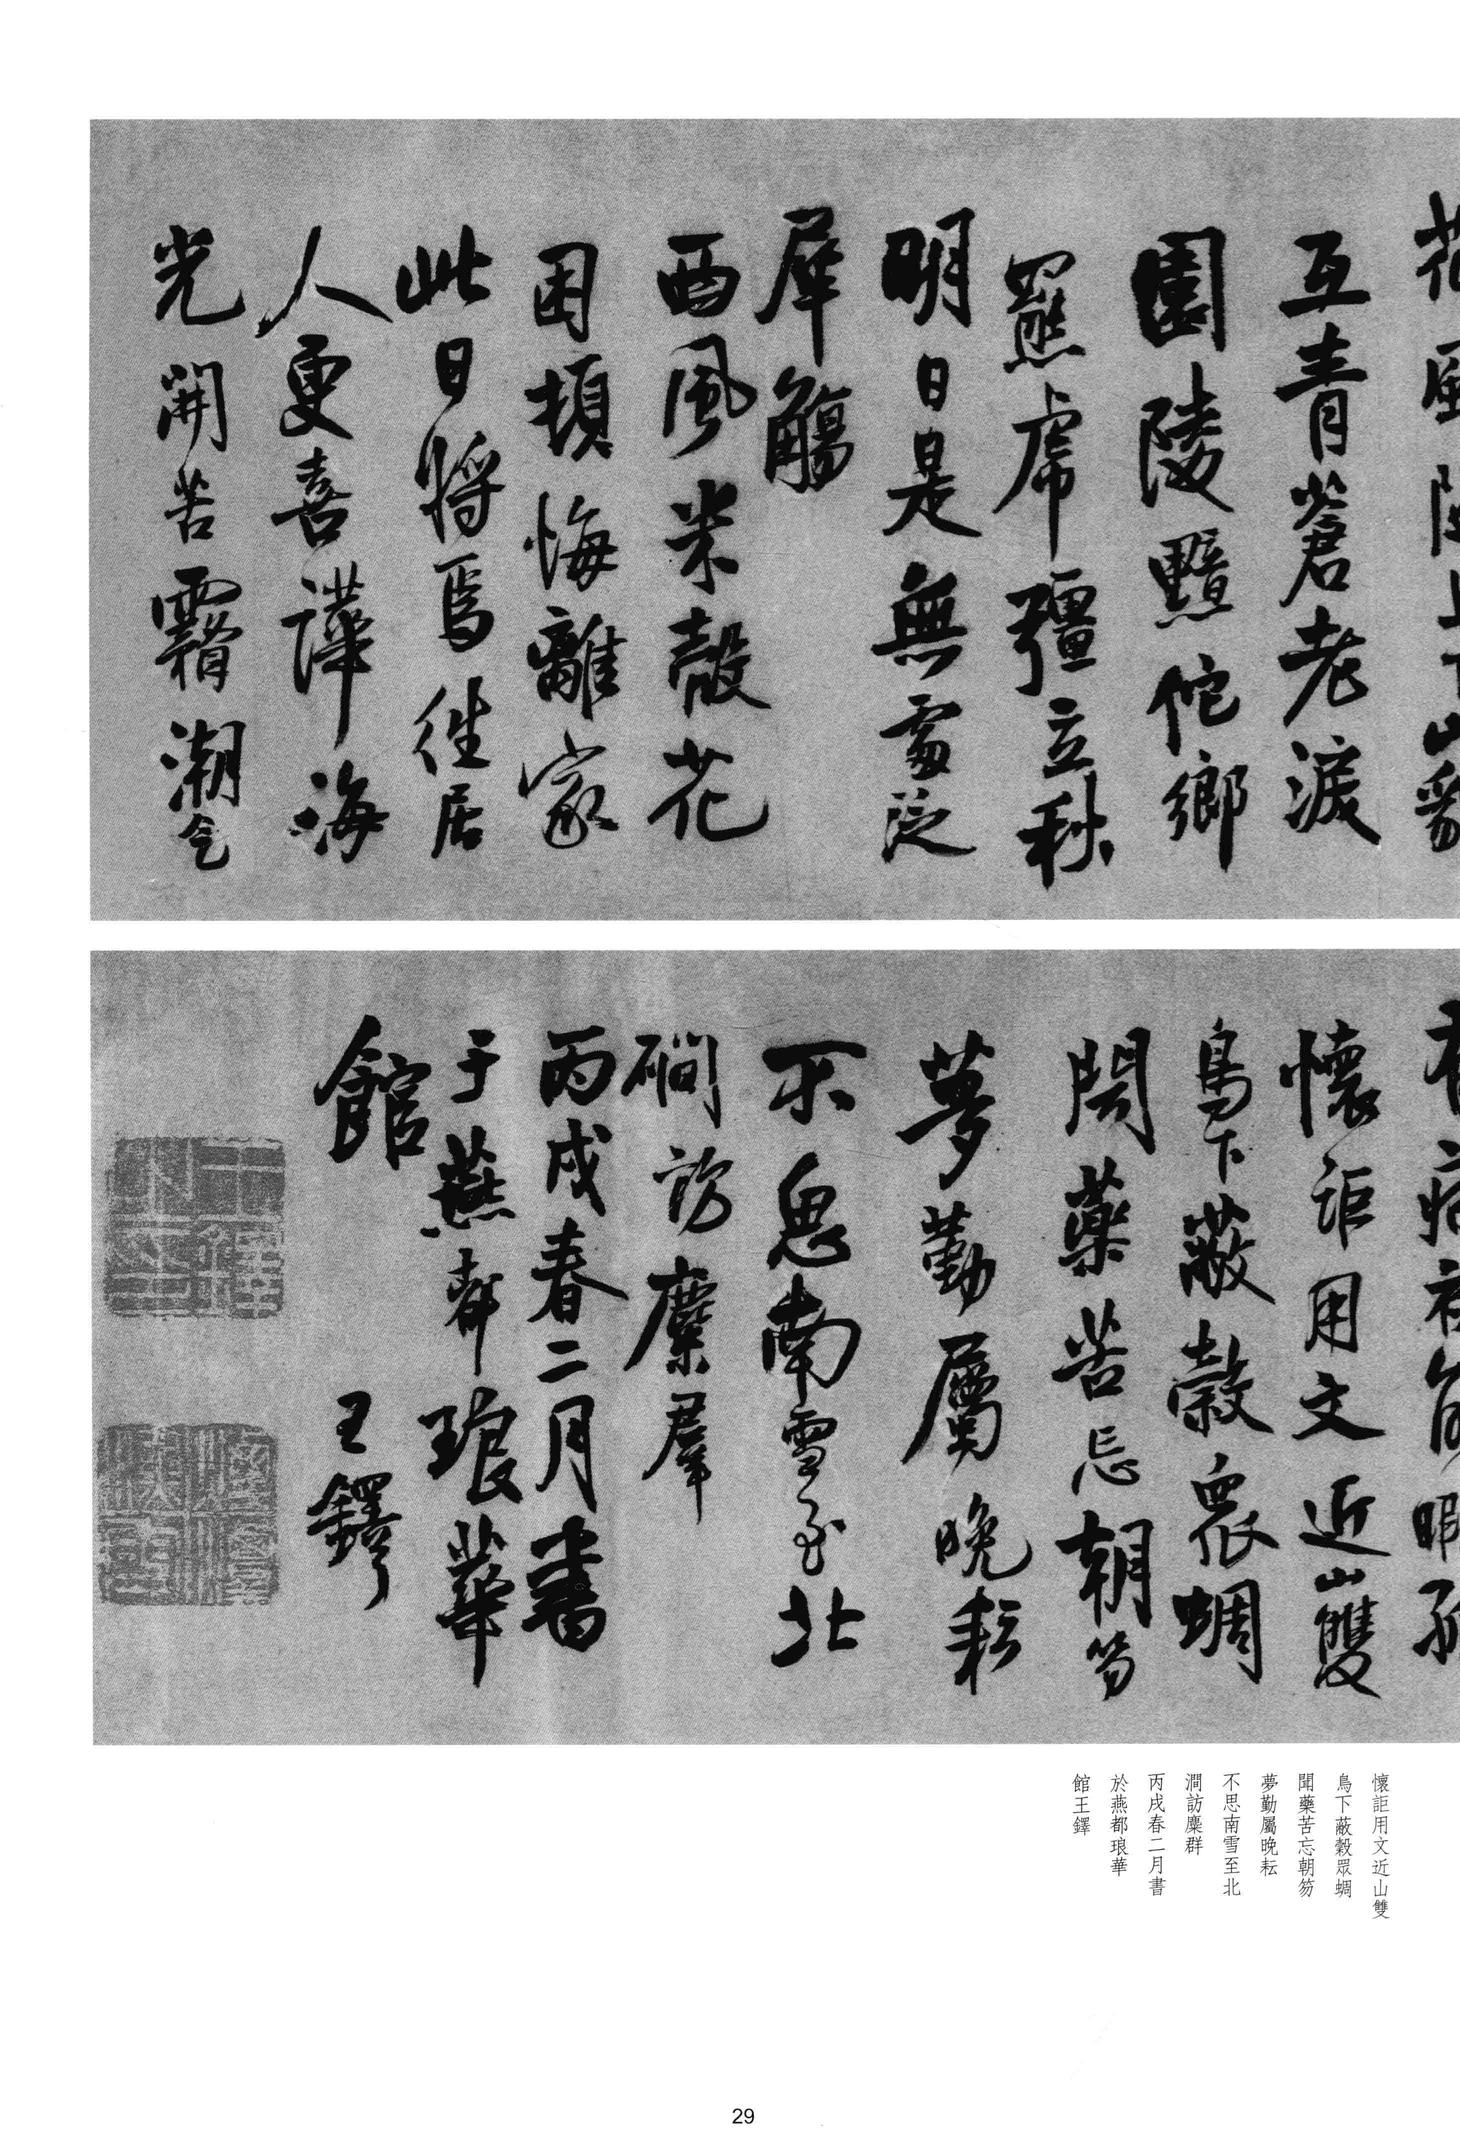 花風
互青蒼老淚
園陵黯佗鄉
羆虎彊立秋
明日是無處泛
犀觴
西風米殼花
困頓悔離家
此日將焉往居
人更喜譁海
光開苦霧潮
懷詎用文近山雙
鳥下蔽穀眾蜩
聞藥苦忘朝笏
夢勤屬晚耘
不思南雪至北
磵訪麋群
丙戌春二月書
于燕都琅華
館
王鐸
懷詎用文近山雙
鳥下蔽穀眾蜩
聞藥苦忘朝笏
夢勤屬晚耘
不思南雪至北
澗訪麋群
丙戌春二月書
於燕都琅華
館王鐸
29